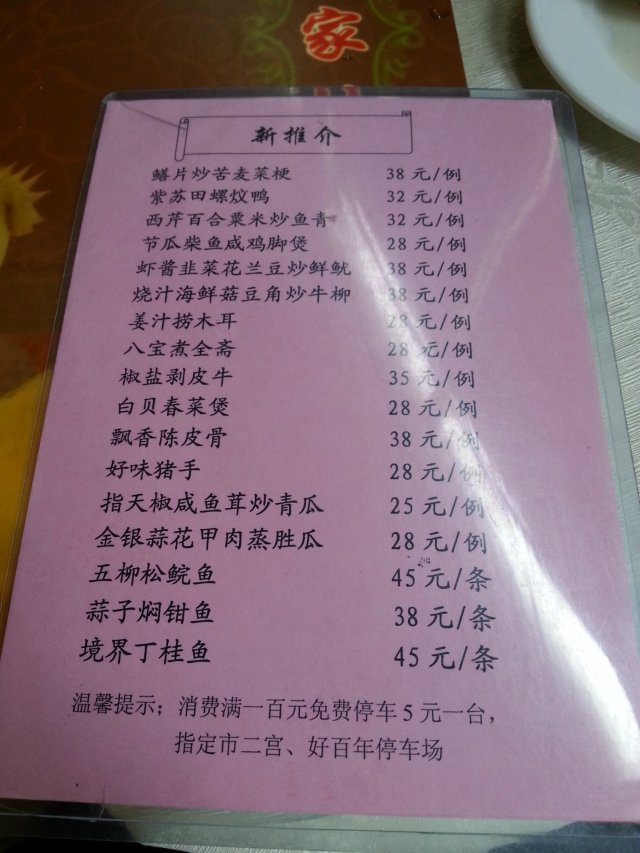 家
新推介
鳝片炒苦麦菜梗 38 元/例
紫苏田螺炆鸭 32 元/例
西芹百合粟米炒鱼青 32 元/例
节瓜柴鱼咸鸡脚煲 28 元/例
虾酱韭菜花兰豆炒鲜鱿 38 元/例
烧汁海鲜菇豆角炒牛柳 38 元/例
姜汁捞木耳 28 元/例
八宝煮全斋 28 元/例
椒盐剥皮牛 35 元/例
白贝春菜煲 28 元/例
飘香陈皮骨 38 元/例
好味猪手 28 元/例
指天椒咸鱼茸炒青瓜 25 元/例
金银蒜花甲肉蒸胜瓜 28 元/例
五柳松鲩鱼 45 元/条
蒜子焖钳鱼 38 元/条
境界丁桂鱼 45 元/条
温馨提示；消费满一百元免费停车 5 元一台，
指定市二宫、好百年停车场